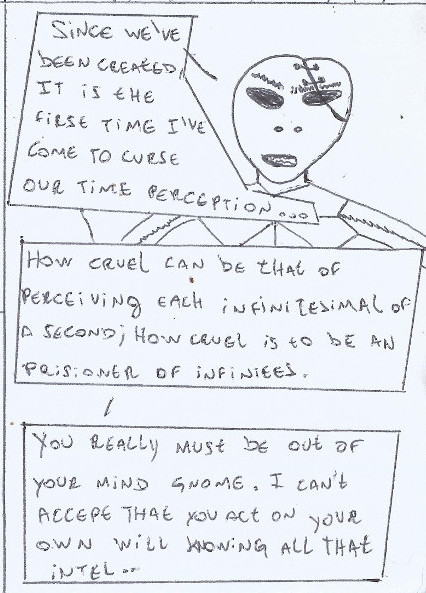 SINCE WE'VE
BEEN CREATED,
IT IS THE
FIRST TIME I'VE
COME TO CURSE
OUR TIME PERCEPTION...
HOW CRUEL CAN BE THAT OF
PERCEIVING EACH INFINITESIMAL OF
A SECOND; HOW CRUEL IS TO BE AN
PRISIONER OF INFINITES.
YOU REALLY MUST BE OUT OF
YOUR MIND GNOME. I CAN'T
ACCEPT THAT YOU ACT ON YOUR
OWN WILL KNOWING ALL THAT
INTEL...